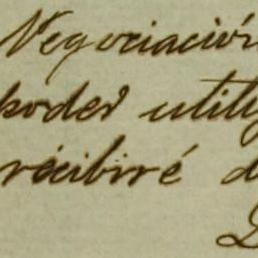 Negociación
poder utili
recibiré d